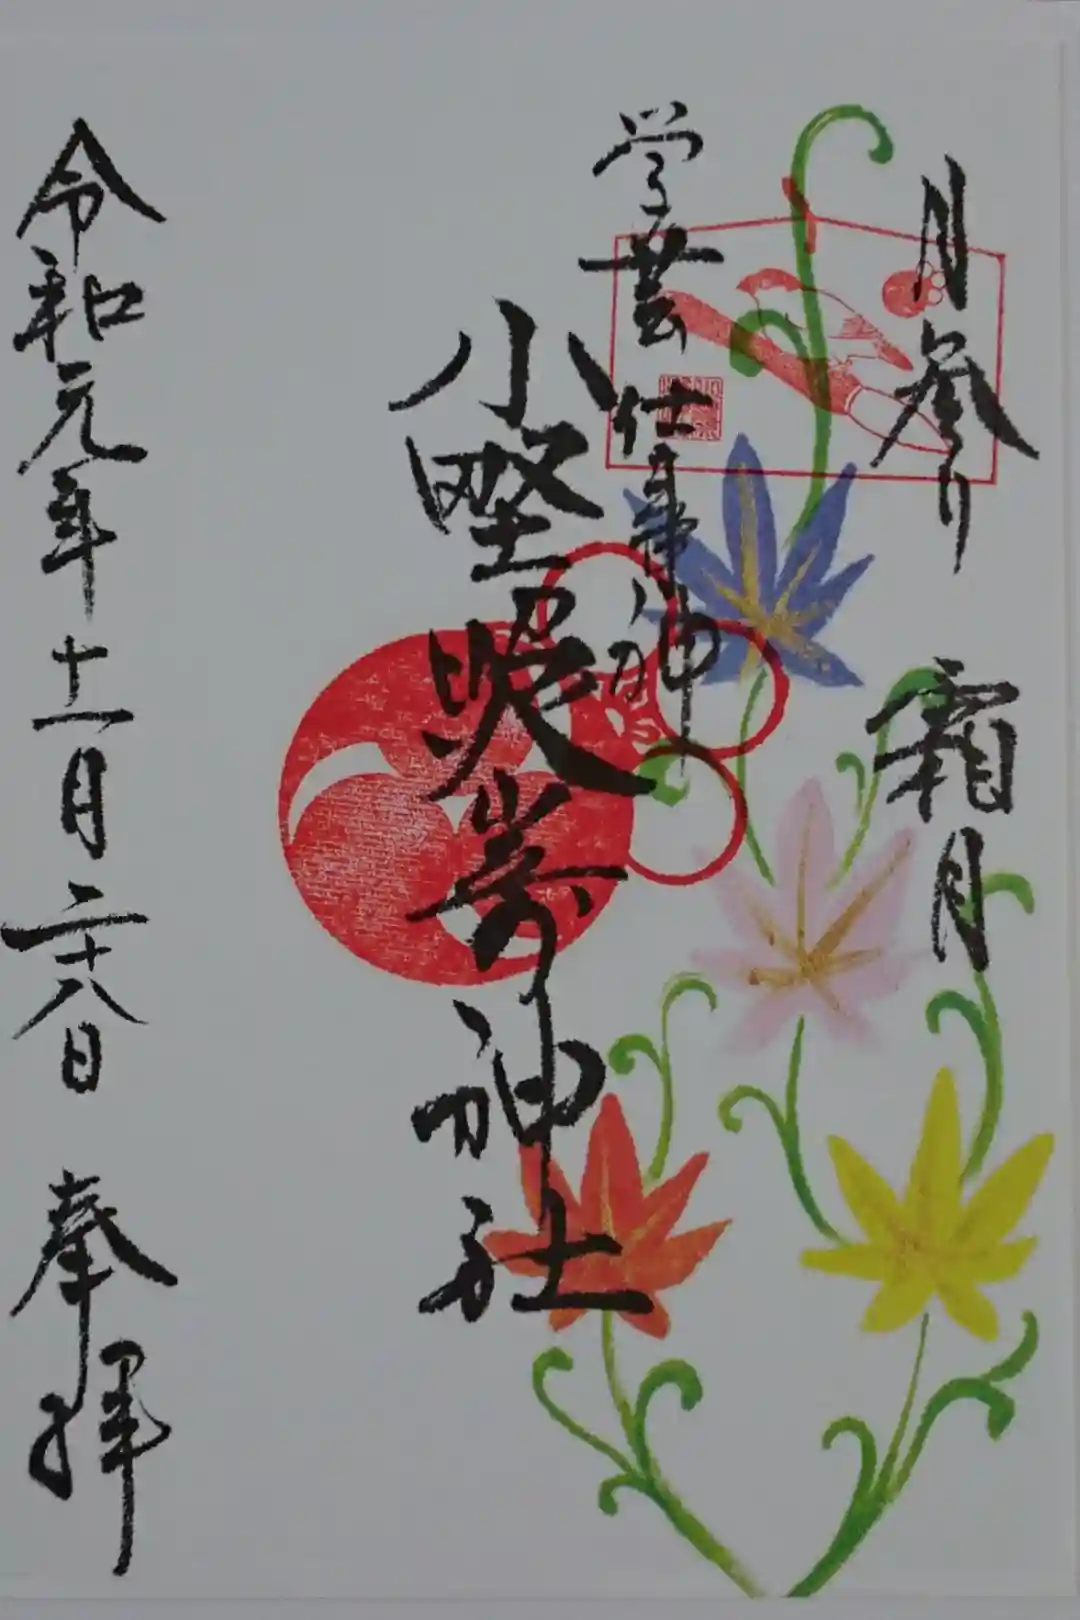 月参り 霜月
学芸 仕事神
小野照崎神社
令和元年十一月二十八日 奉拝